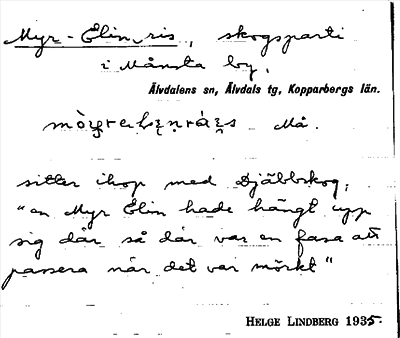 Myr-Elin, ris, skogsparti
i Månsta by,
Älvdalens sn, Älvdals tg, Kopparbergs län.
Må.
sitter ihop med Djäbbskog,
"en Myr Elin hade hängt upp
sig där så där var en fasa att
passera när det var mörkt"
HELGE LINDBERG 1935.